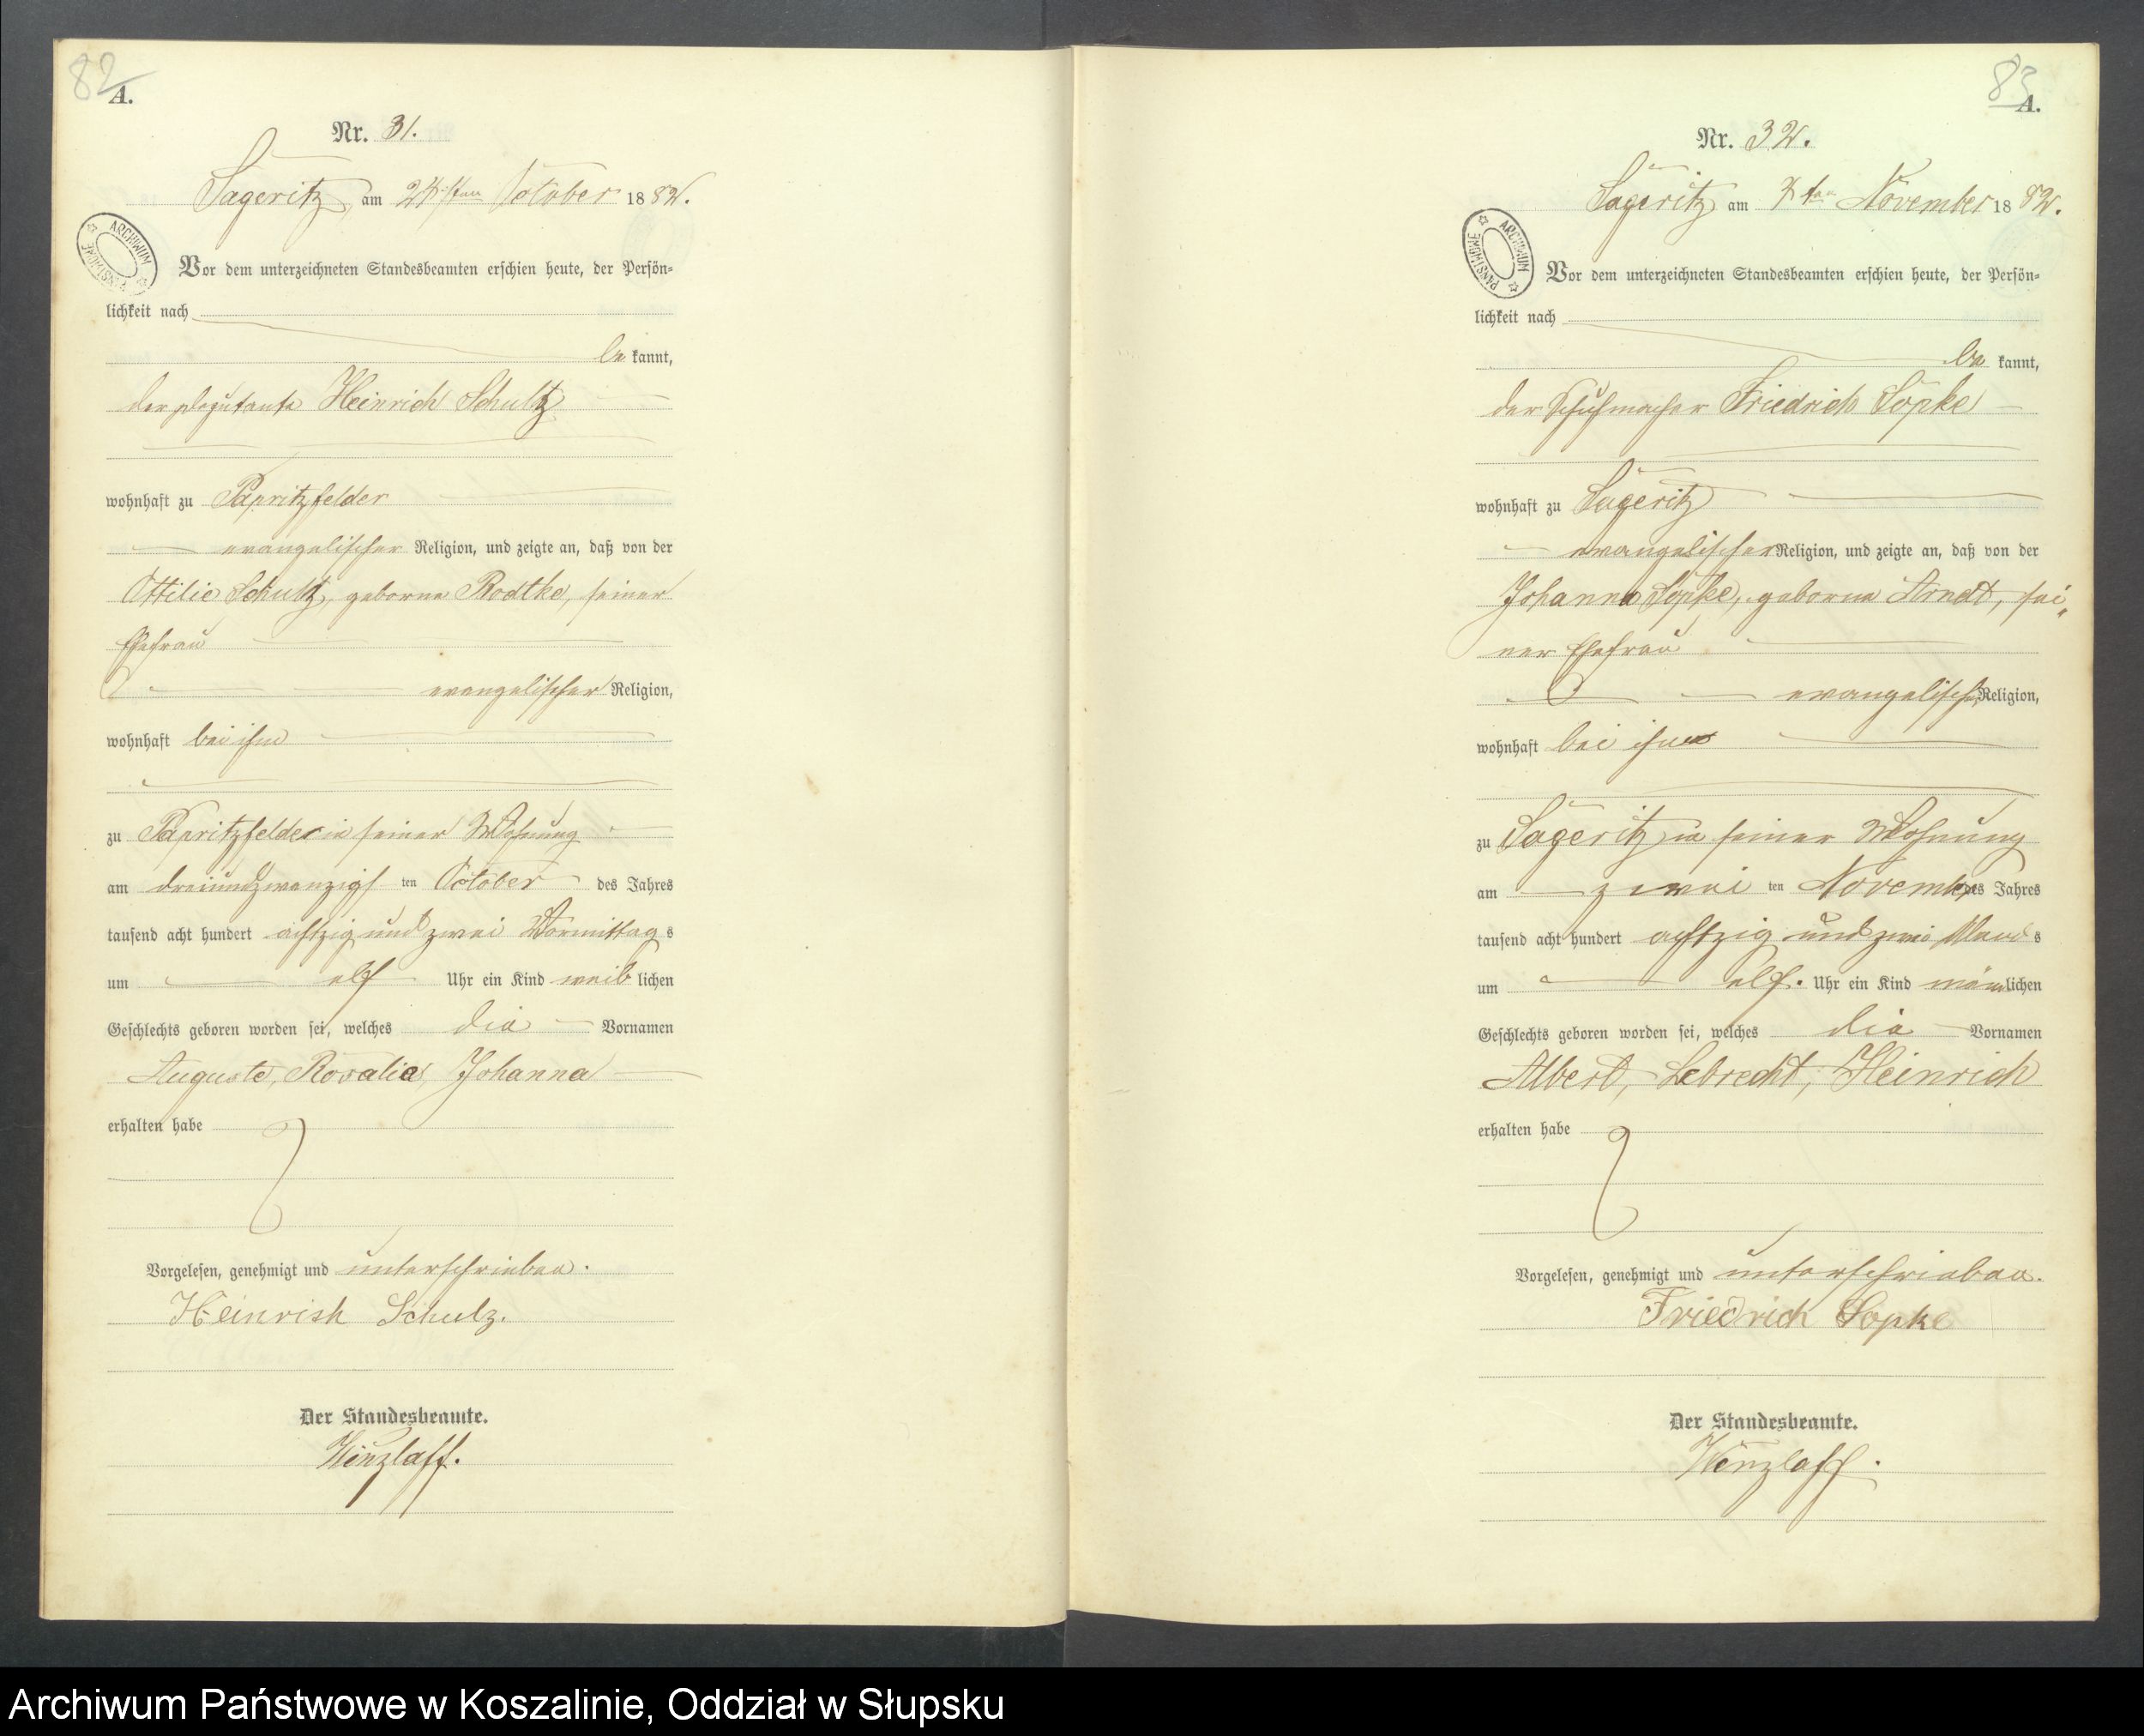 82
A.
Nr. 31.
Sageritz, am 24sten October 1882.
ARCHIWUM PAŃSTWOWE
Vor dem unterzeichneten Standesbeamten erschien heute, der Persön-
lichkeit nach
be kannt,
der Heinrich Schultz
wohnhaft zu Papritzfelder
evangelischer Religion, und zeigte an, daß von der
Ottilie Schultz, geborne Rodtke, seiner
Ehefrau
evangelischer Religion,
wohnhaft bei ihm
zu Papritzfelde in seiner Wohnung
am dreiundzwanzigsten October des Jahres
tausend acht hundert achtzig und zwei Vormittags
um elf Uhr ein Kind weiblichen
Geschlechts geboren worden sei, welches die Vornamen
Auguste, Rosalie, Johanna
erhalten habe
Vorgelesen, genehmigt und unterschrieben.
Heinrich Schulz.
Der Standesbeamte.
83
A.
Nr. 32.
Sageritz am ten November 1882.
ARCHIWUM PAŃSTWOWE
Vor dem unterzeichneten Standesbeamten erschien heute, der Persön-
lichkeit nach
be kannt,
der Schuhmacher Friedrich Sopke
wohnhaft zu Sageritz
evangelischer Religion, und zeigte an, daß von der
Johanne Sopke, geborne Arndt, sei-
ner Ehefrau
evangelischer Religion,
wohnhaft bei ihm
zu Sageritz in seiner Wohnung
am zweiten November des Jahres
tausend acht hundert achtzig und zwei Abends
um elf Uhr ein Kind männlichen
Geschlechts geboren worden sei, welches die Vornamen
Albert, Lebrecht, Heinrich
erhalten habe
Vorgelesen, genehmigt und unterschrieben.
Friedrich Sopke
Der Standesbeamte.
Archiwum Państwowe w Koszalinie, Oddział w Słupsku